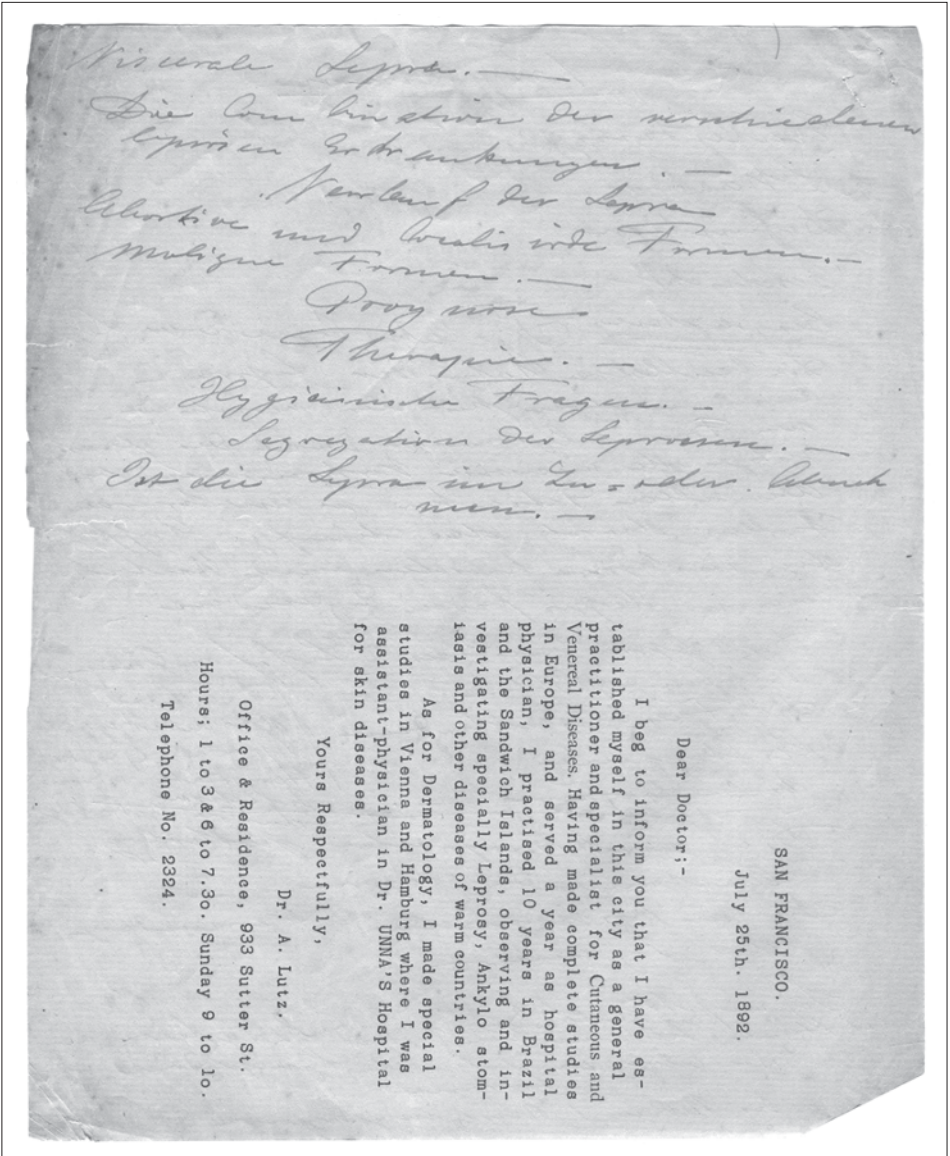 Viscerale Lepra. —
Die Combination der verschiedenen
leprösen Erkrankungen. —
Verlauf der Lepra
Abortive und localisirte Formen. —
Maligne Formen. —
Prognose
Therapie. —
Hygieinische Fragen. —
Segregation der Leprosen. —
Ist die Lepra im Zu- oder Abneh
men. —
SAN FRANCISCO.
July 25th. 1892.
Dear Doctor;-
I beg to inform you that I have es-
tablished myself in this city as a general
practitioner and specialist for Cutaneous and
Venereal Diseases. Having made complete studies
in Europe, and served a year as hospital
physician, I practised 10 years in Brazil
and the Sandwich Islands, observing and in-
vestigating specially Leprosy, Ankylo stom-
iasis and other diseases of warm countries.
As for Dermatology, I made special
studies in Vienna and Hamburg where I was
assistant-physician in Dr. UNNA'S Hospital
for skin diseases.
Yours Respectfully,
Dr. A. Lutz.
Office & Residence, 933 Sutter St.
Hours; 1 to 3 & 6 to 7.3o. Sunday 9 to 1o.
Telephone No. 2324.